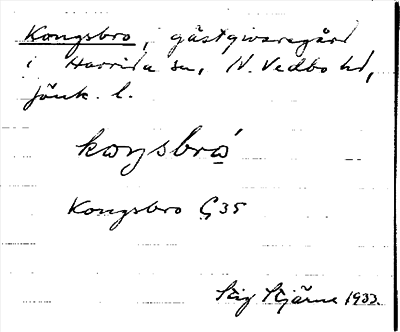 Kongsbro, gästgivaregård
i Harrida sn, N. Vedbo hd,
Jönk. l.
kɷŋsbró̲
Kongsbro G 35
Stig Stjärne 1933.